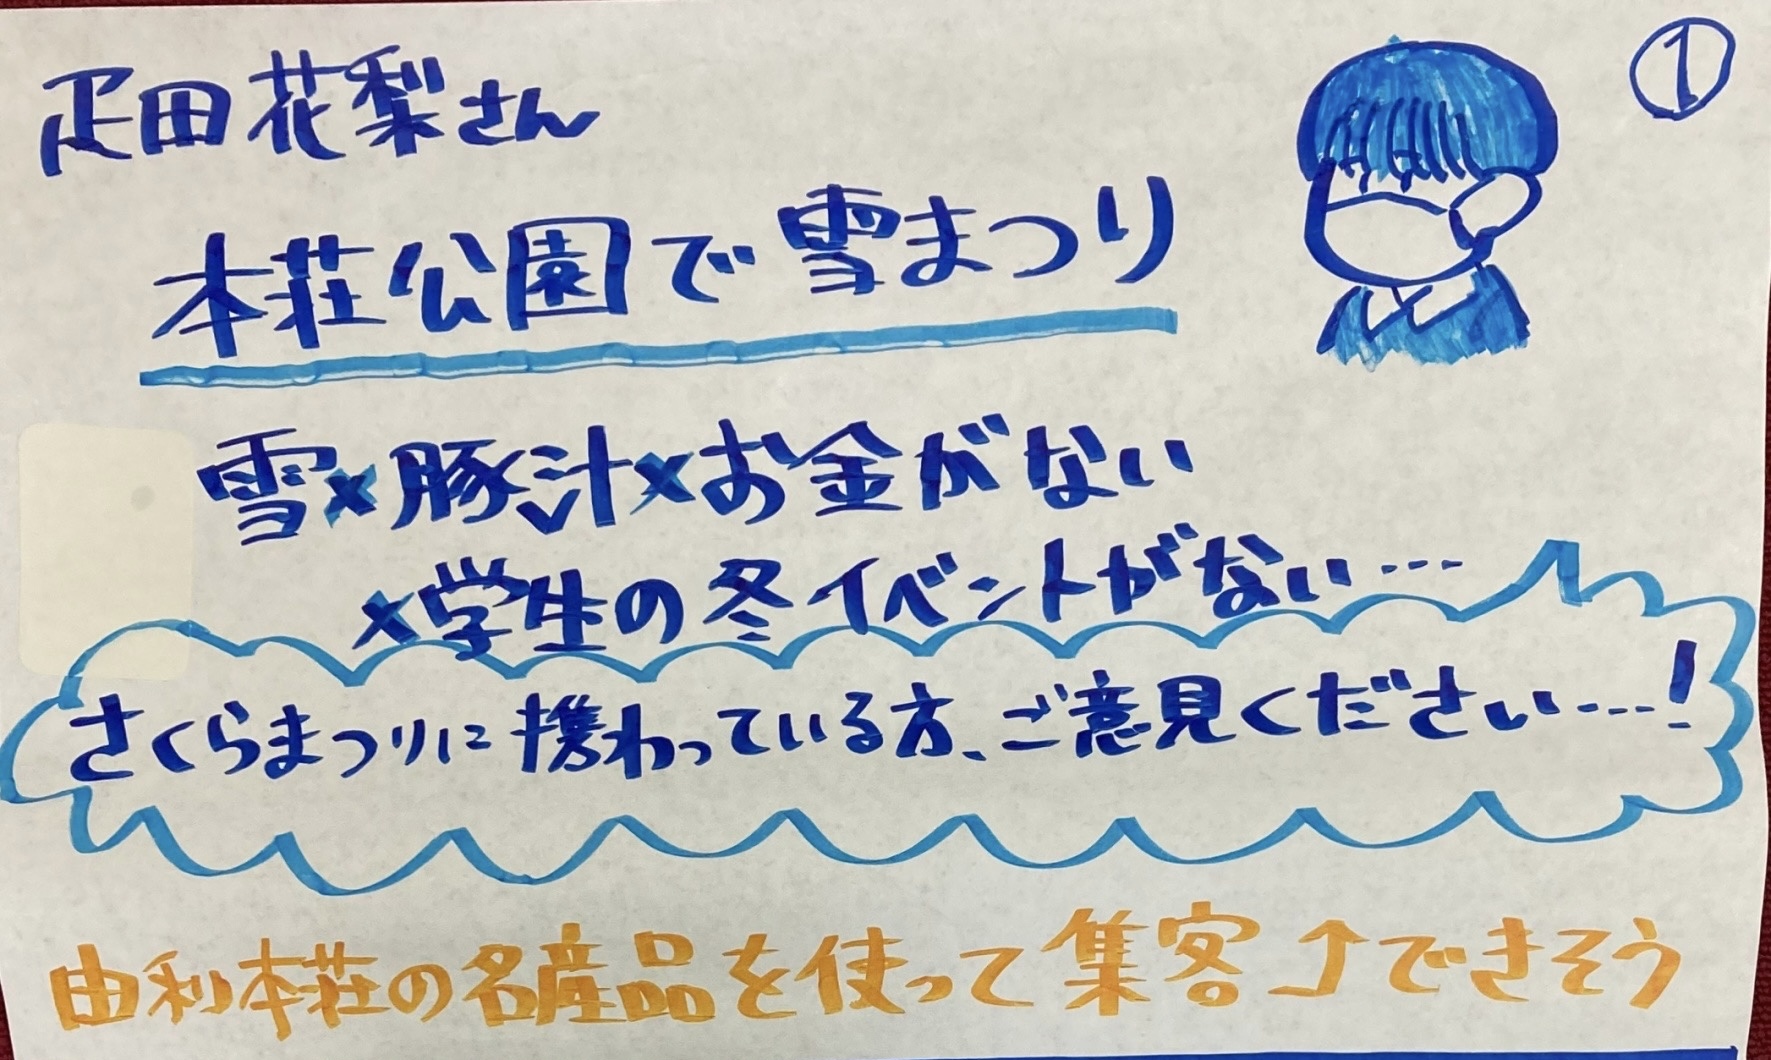 ①
疋田花梨さん
本荘公園で雪まつり
雪×豚汁×お金がない
×学生の冬イベントがない…
さくらまつりに携わっている方、ご意見ください…!
由利本荘の名産品を使って集客↑できそう